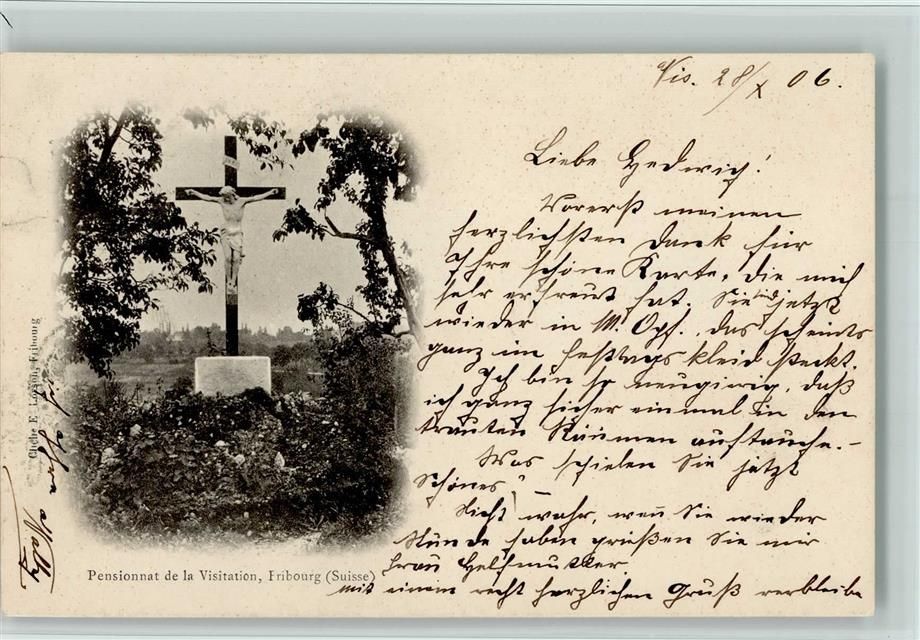 Vis. 28/X 06.
Liebe Hedwig!
Vorerst meinen
herzlichsten Dank für
Ihre schöne Karte, die mich
sehr erfreut hat. Sie sind jetzt
wieder in M. Opf., das scheints
ganz im Festtagskleid steckt.
Ich bin so neugierig, daß
ich ganz sicher einmal in den
trauten Räumen auftauche.-
Was spielen Sie jetzt
Schönes? –
Nicht wahr, wenn Sie wieder
Stunde haben grüßen Sie mir
Frau
mit einem recht herzlichen Gruß verbleibe
ich Ihre
Cliché E. Lorson, Fribourg
Pensionnat de la Visitation, Fribourg (Suisse)